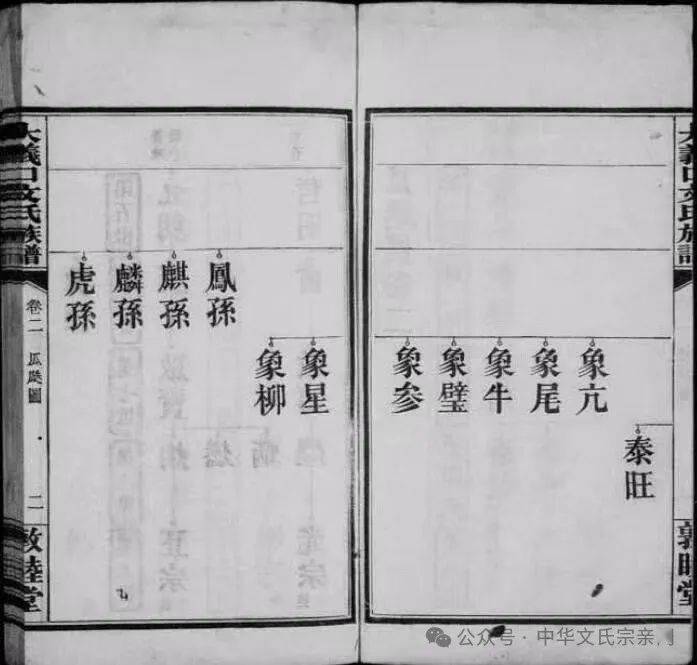 大義口文氏族譜
敦睦堂
泰旺
象亢
象尾
象牛
象璧
象参
象星
象柳
鳳孫
麒孫
麟孫
虎孫
大義口文氏族譜
卷二 瓜瓞圖
二
敦睦堂
公众号 · 中华文氏宗亲